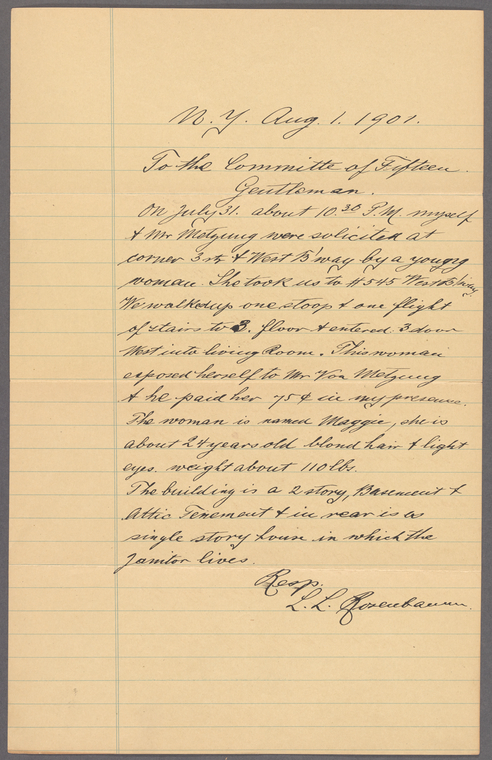 N. Y. Aug. 1. 1901.
To the Committe of Fifteen.
Gentleman.
On July 31. about 10.30 P.M. myself
& Mr Metzung were solicited at
corner 3 rd & West B'way by a young
woman. She took us to # 545 West B'way.
We walked up one stoop & one flight
of stairs to 3. floor & entered 3 door
West into living Room. This woman
exposed herself to Mr. Von Metzung
& he paid her 75 ¢ in my presence.
The woman is named Maggie, she is
about 24 years old blond hair & light
eyes. weight about 110 lbs.
The building is a 2 story, Basement &
Attic Tenement & in rear is a
single story house in which the
Janitor lives.
Resp.
L. L. Rosenbaum.